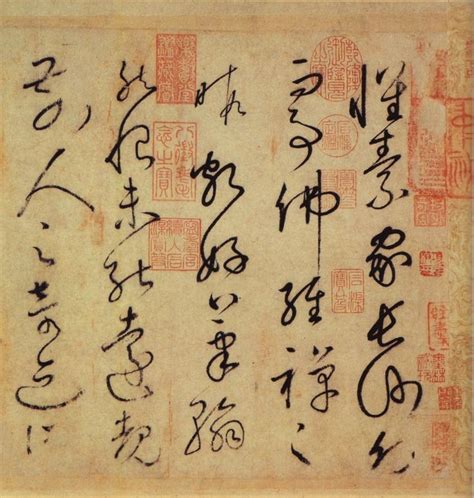 懷素家長沙幼
而事佛經禪之
暇頗好筆翰
然恨未能遠覩
前人之奇迹所